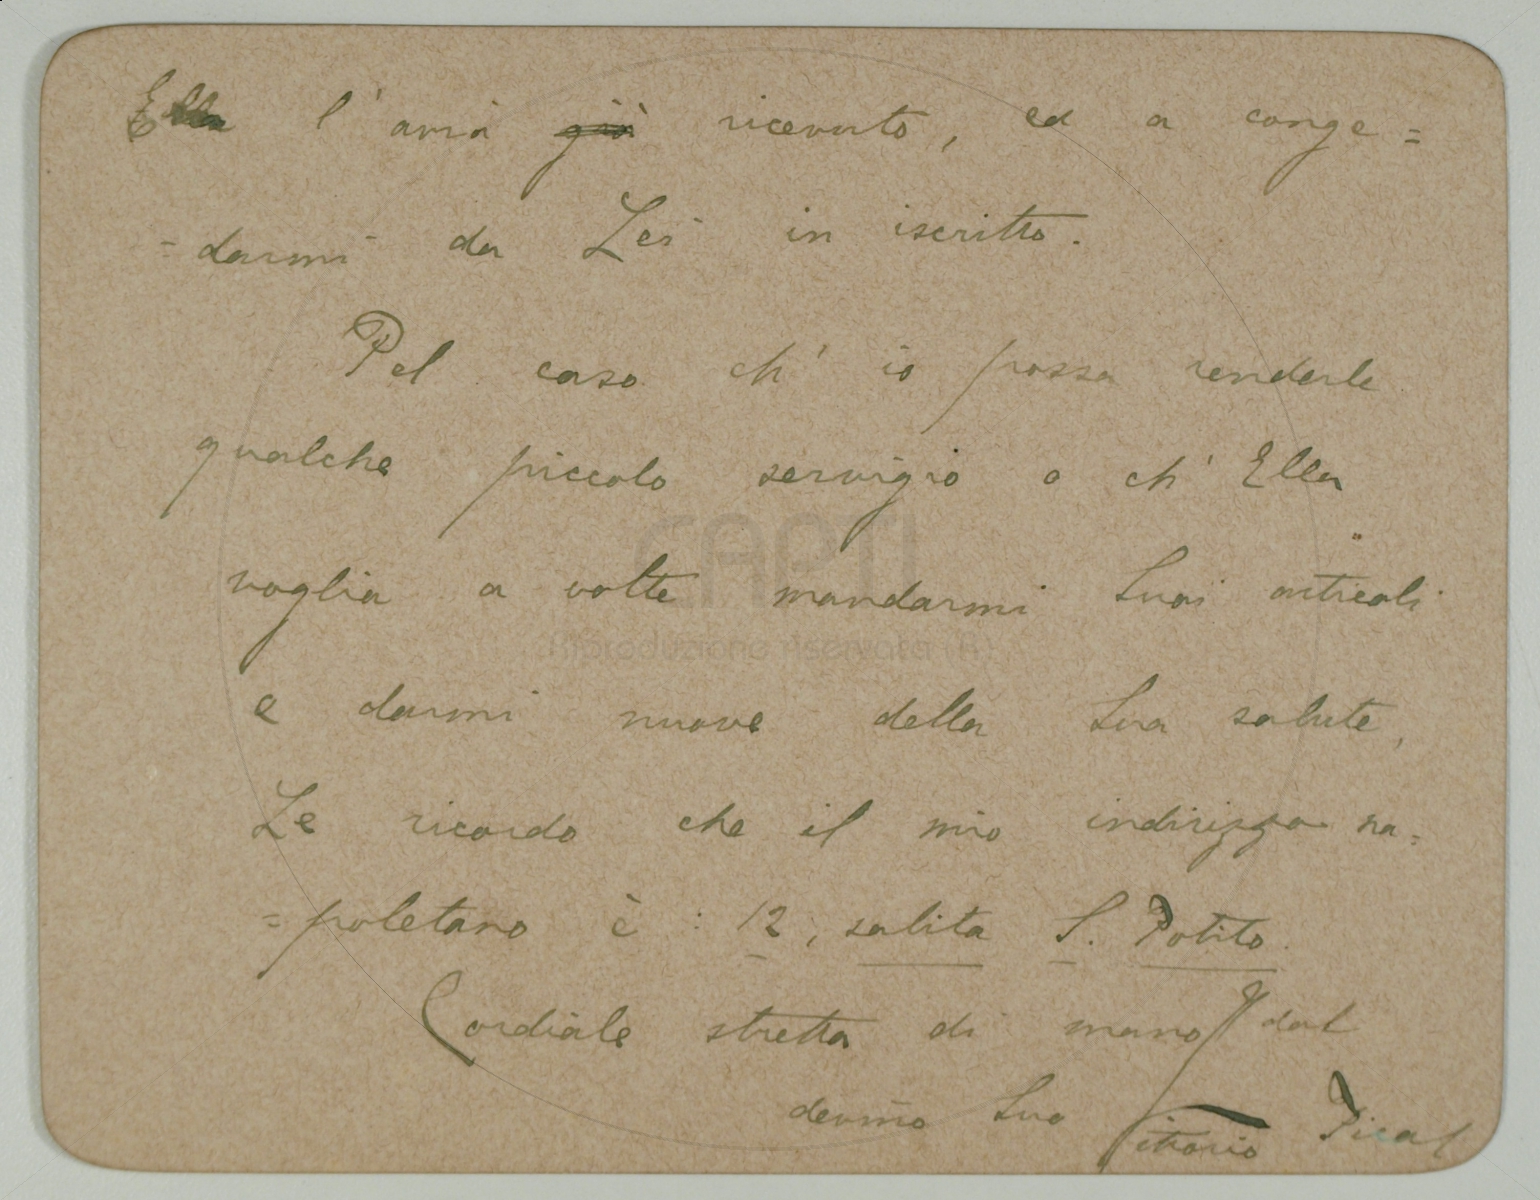 Ella l'avrà già ricevuto, ed a conge=
=darmi da Lei in iscritto.
Pel caso ch'io possa renderle
qualche piccolo servigio o ch'Ella
voglia a volte mandarmi Suoi articoli
e darmi nuove della Sua salute,
Le ricordo che il mio indirizzo na=
CARTI
Riproduzione riservata (R)
=poletano è: 12, salita S. Potito.
Cordiale stretta di mano dal
devmo Suo Vittorio Pica